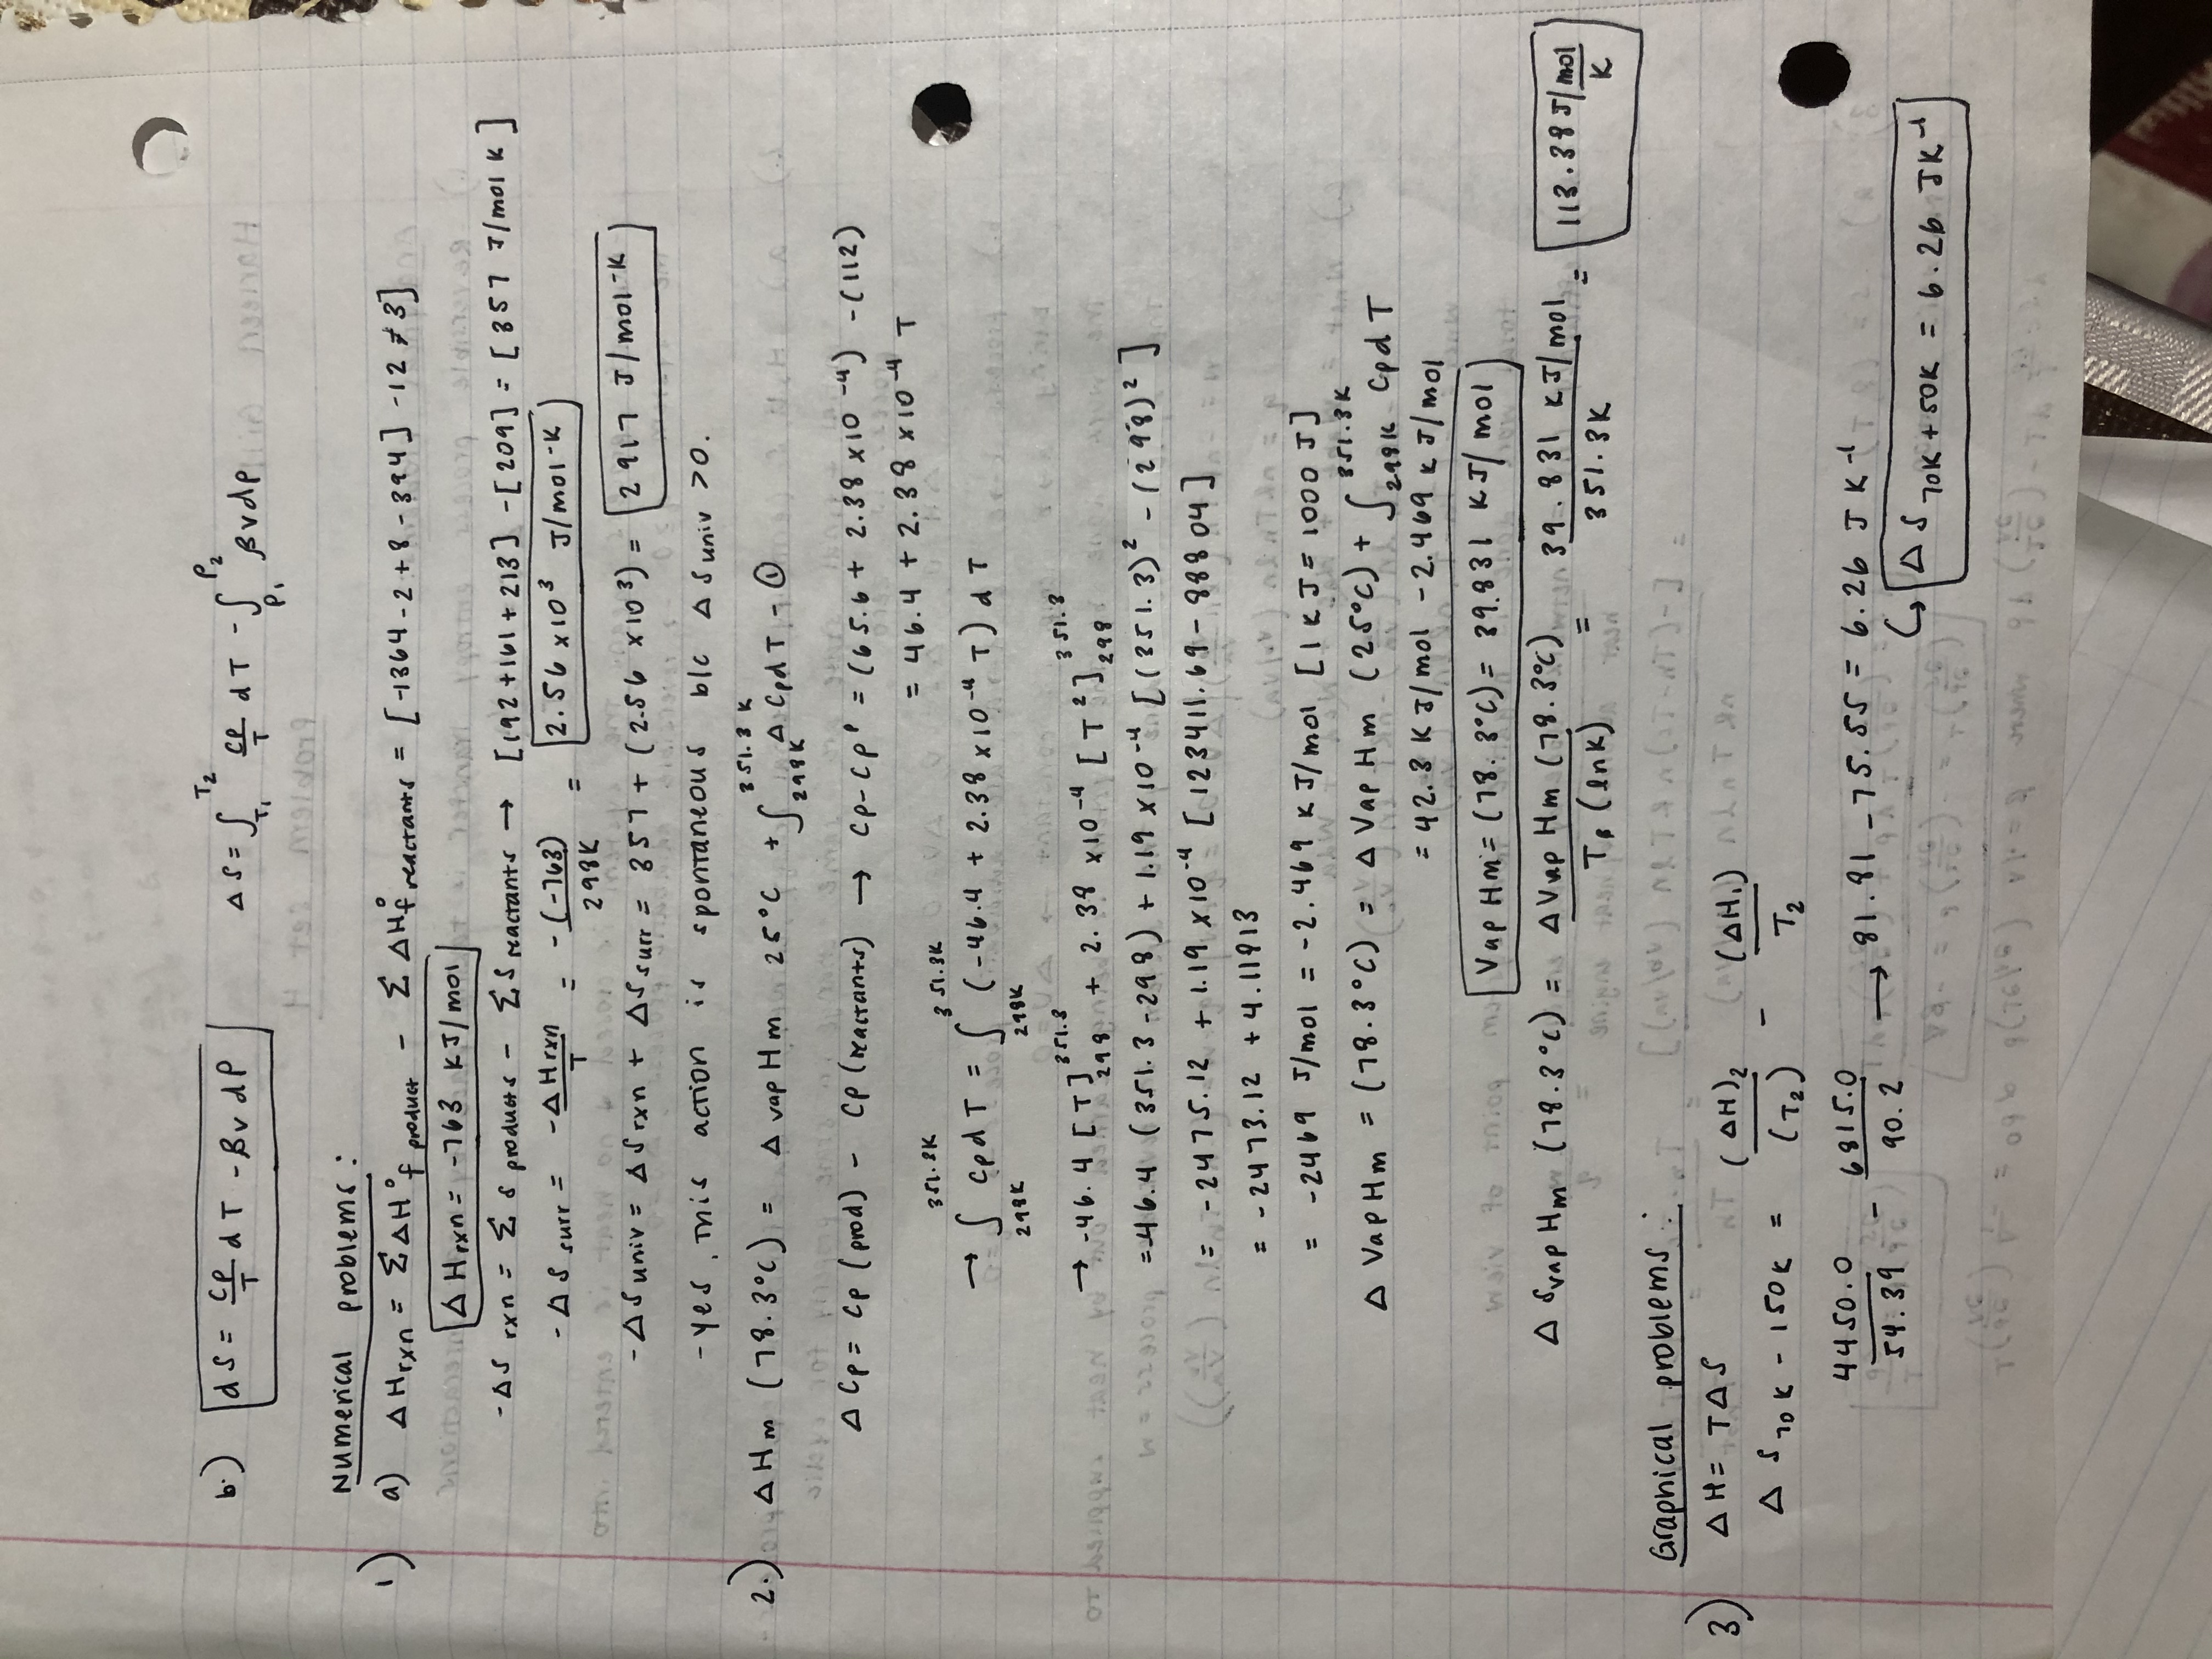 b.) dS = Cp/T dT - βv dP    ΔS = ∫T₁^T₂ Cp/T dT - ∫P₁^P₂ βv dp
Numerical problems:
1) a) ΔHrxn = ΣΔH°f product - ΣΔH°f reactants = [-1364 - 2 + 8 - 394] - 12
ΔHrxn = -763 KJ/mol
-ΔS rxn = Σ S products - ΣS reactants → [192+161+213] - [209] = [357 J/mol K]
-ΔS surr = -ΔHrxn/T = -(-763)/298K = 2.56 x10³ J/mol-K
-ΔSuniv = ΔSrxn + ΔSsurr = 357 + (2.56 x10³) = 2917 J/mol-K
-yes, this action is spontaneous b/c ΔSuniv >0.
2.) ΔHm (78.3°C) = Δvap Hm 25°C + ∫298K^351.3K ΔCpdT - ①
ΔCp = Cp (prod) - Cp (reactants) → Cp-Cp' = (65.6 + 2.38 x10⁻⁴) - (112)
= 46.4 + 2.38 x10⁻⁴ T
→ ∫298K^351.3K CpdT = ∫298K^351.3K (-46.4 + 2.38 x10⁻⁴ T) dT
→ -46.4 [T]298^351.3 + 2.38 x10⁻⁴ [T²]298^351.3
= -46.4 (351.3-298) + 1.19 x10⁻⁴ [(351.3)² - (298)²]
= -2475.12 + 1.19 x10⁻⁴ [123411.69 - 88804]
= -2473.12 + 4.11813
= -2469 J/mol = -2.469 KJ/mol [1 KJ = 1000 J]
Δ Vap Hm = (78.3°C) = Δ Vap Hm (25°C) + ∫298K^351.3K CpdT
= 42.3 KJ/mol - 2.469 KJ/mol
Vap Hm = (78.3°C) = 39.831 KJ/mol
Δ Svap Hm (78.3°C) = ΔVap Hm (78.3°C)/TB (lnK) = 39.831 KJ/mol/351.3K = 113.38 J/mol/K
Graphical problems:
3) ΔH = TΔS
ΔS 70K - 150K = (ΔH)₂/(T₂) - (ΔH₁)/T₂
4450.0/54.39 - 6815.0/90.2 → 81.81 - 75.55 = 6.26 J K⁻¹
↳ ΔS 70K + 50K = 6.26 JK⁻¹